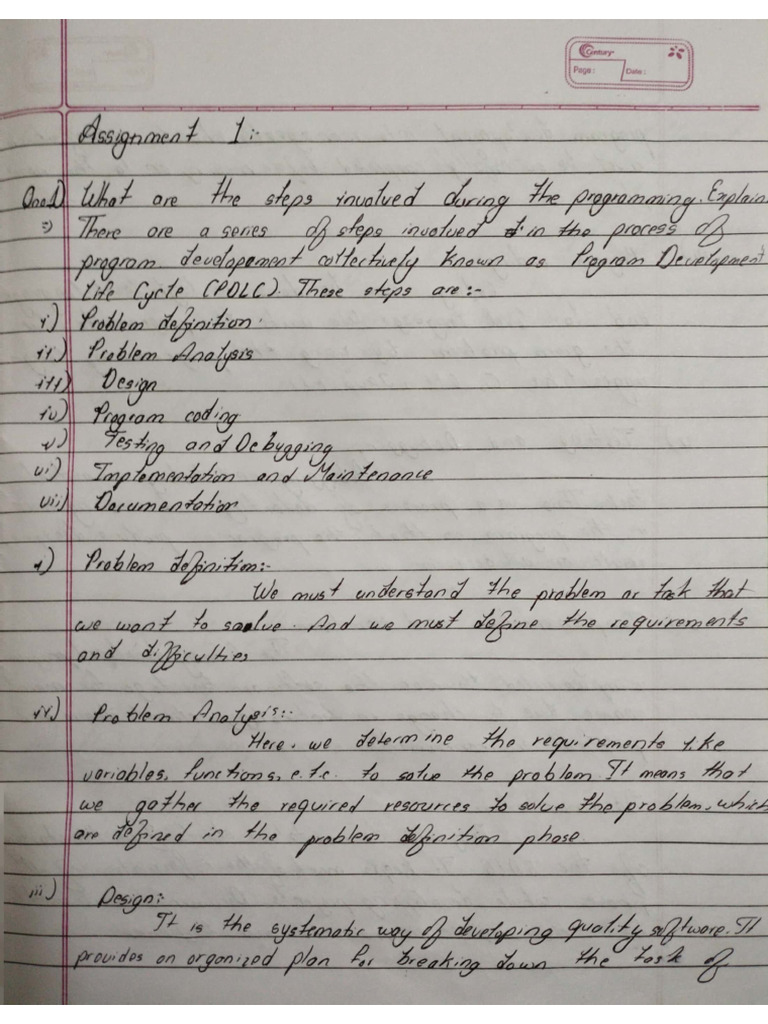 Century
Page: Date:
Assignment 1:-
Qno.1) What are the steps involved during the programming. Explain
=> There are a series of steps involved in the process of
program developement collectively known as Program Development
Life Cycle (PDLC). These steps are:-
i) Problem definition.
ii) Problem Analysis
iii) Design
iv) Program coding
v) Testing and Debugging
vi) Implementation and Maintenance
vii) Documentation
i) Problem definition:-
We must understand the problem or task that
we want to solve. And we must define the requirements
and difficulties
ii) Problem Analysis:-
Here, we determine the requirements like
variables, functions, e.t.c. to solve the problem. It means that
we gather the required resources to solve the problem, which
are defined in the problem definition phase.
iii) Design:-
It is the systematic way of developing quality software. It
provides an organized plan for breaking down the task of